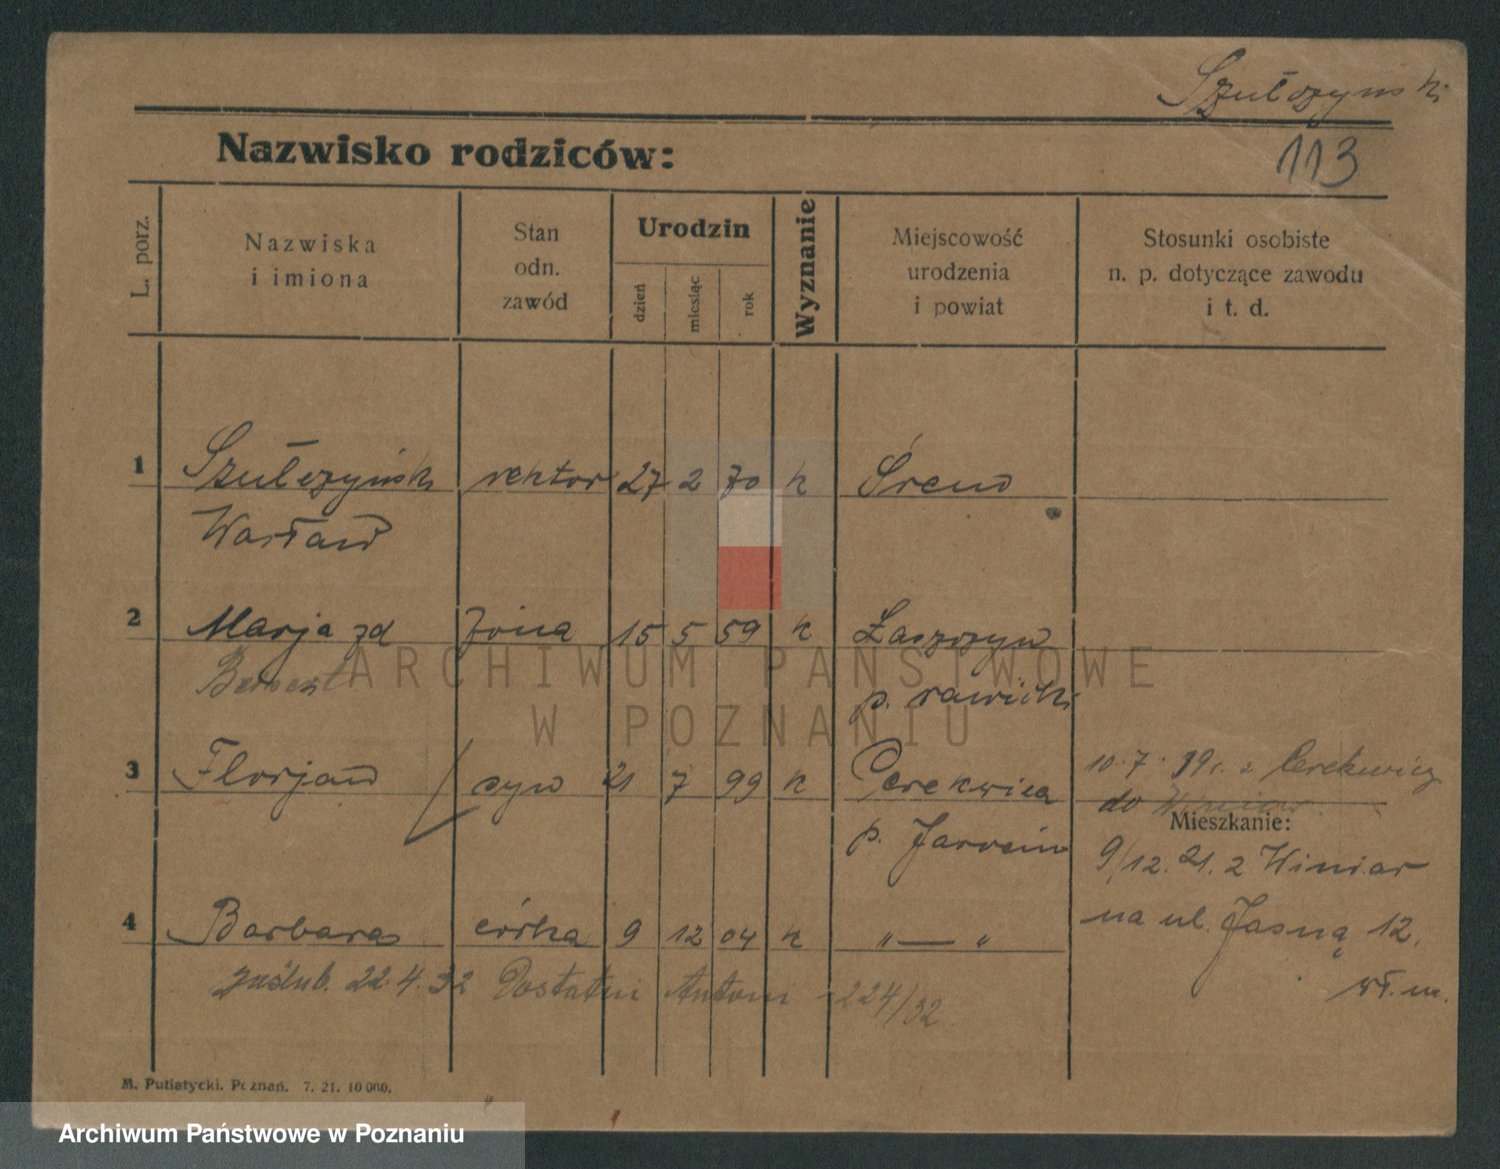 Szułczyński
Nazwisko rodziców:
113
L. porz.
Nazwiska
i imiona
Stan
odn.
zawód
Urodzin
dzień
miesiąc
rok
Wyznanie
Miejscowość
urodzenia
i powiat
Stosunki osobiste
n. p. dotyczące zawodu
i t. d.
1 Szułczyński rektor 27 2 70 k Śrem
Wacław
2 Marja zd żona 15 5 59 k Łaszczyn
p. rawicki
3 Florjan syn 21 7 99 k Cerekwica
p. Jarocin
10.7.19r. z Cerekwicy
do
Mieszkanie:
9/12.21. z Winiar
na ul. Jasną 12.
4 Barbara córka 9 12 04 k "—"
zaślub. 22.4.32 Dostatni Antoni 224/32
M. Putiatycki. Poznań. 7. 21. 10 000.
ARCHIWUM PAŃSTWOWE
W POZNANIU
Archiwum Państwowe w Poznaniu